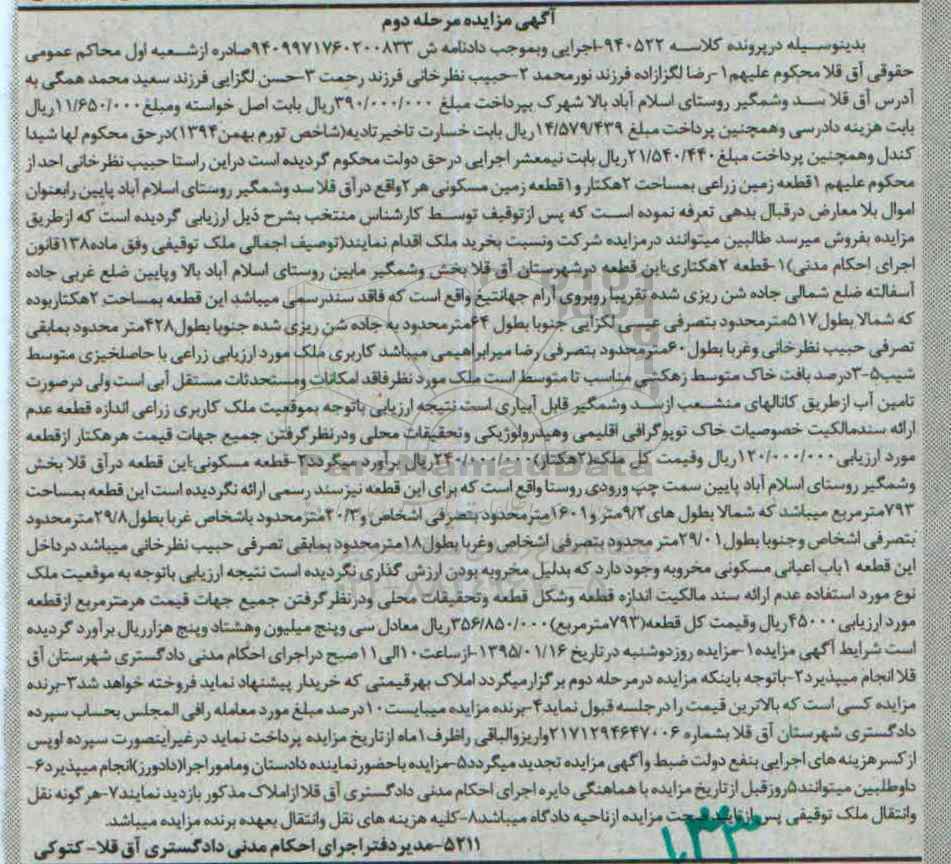 آگهی مزایده مرحله دوم
بدینوسیله درپرونده کلاسه ۹۴۰۵۲۲-اجرایی وبموجب دادنامه ش ۹۴۰۹۹۷۱۷۶۰۲۰۰۸۳۳صادره ازشعبه اول محاکم عمومی
حقوقی آق قلا محکوم علیهم۱-رضا لگزازاده فرزند نورمحمد ۲-حبیب نظرخانی فرزند رحمت ۳-حسن لگزایی فرزند سعید محمد همگی به
آدرس آق قلا سد وشمگیر روستای اسلام آباد بالا شهرک بپرداخت مبلغ ۳۹۰/۰۰۰/۰۰۰ریال بابت اصل خواسته ومبلغ۱۱/۶۵۰/۰۰۰ریال
بابت هزینه دادرسی وهمچنین پرداخت مبلغ ۱۴/۵۷۹/۴۳۹ریال بابت خسارت تاخیرتادیه(شاخص تورم بهمن۱۳۹۴)درحق محکوم لها شیدا
کندل وهمچنین پرداخت مبلغ۲۱/۵۴۰/۴۴۰ریال بابت نیمعشر اجرایی درحق دولت محکوم گردیده است دراین راستا حبیب نظرخانی احد از
محکوم علیهم ۱قطعه زمین زراعی بمساحت ۲هکتار و۱قطعه زمین مسکونی هر۲واقع درآق قلا سد وشمگیر روستای اسلام آباد پایین رابعنوان
اموال بلا معارض درقبال بدهی تعرفه نموده است که پس ازتوقیف توسط کارشناس منتخب بشرح ذیل ارزیابی گردیده است که ازطریق
مزایده بفروش میرسد طالبین میتوانند درمزایده شرکت ونسبت بخرید ملک اقدام نمایند(توصیف اجمالی ملک توقیفی وفق ماده۱۳۸قانون
اجرای احکام مدنی)۱-قطعه ۲هکتاری:این قطعه درشهرستان آق قلا بخش وشمگیر مابین روستای اسلام آباد بالا وپایین ضلع غربی جاده
آسفالته ضلع شمالی جاده شن ریزی شده تقریبا روبروی آرام جهانتیغ واقع است که فاقد سندرسمی میباشد این قطعه بمساحت ۲هکتاربوده
که شمالا بطول۵۱۷مترمحدود بتصرفی عیسی لگزایی جنوبا بطول ۶۴مترمحدود به جاده شن ریزی شده جنوبا بطول۴۲۸متر محدود بمابقی
تصرفی حبیب نظرخانی وغربا بطول۶۰مترمحدود بتصرفی رضا میرابراهیمی میباشد کاربری ملک مورد ارزیابی زراعی با حاصلخیزی متوسط
شیب۵-۳درصد بافت خاک متوسط زهکشی مناسب تا متوسط است ملک مورد نظرفاقد امکانات ومستحدثات مستقل آبی است ولی درصورت
تامین آب ازطریق کانالهای منشعب ازسد وشمگیر قابل آبیاری است نتیجه ارزیابی باتوجه بموقعیت ملک کاربری زراعی اندازه قطعه عدم
ارائه سندمالکیت خصوصیات خاک توپوگرافی اقلیمی وهیدرولوژیکی وتحقیقات محلی ودرنظرگرفتن جمیع جهات قیمت هرهکتار ازقطعه
مورد ارزیابی۱۲۰/۰۰۰/۰۰۰ریال وقیمت کل ملک(۲هکتار)۲۴۰/۰۰۰/۰۰۰ریال برآورد میگردد۲-قطعه مسکونی:این قطعه درآق قلا بخش
وشمگیر روستای اسلام آباد پایین سمت چپ ورودی روستا واقع است که برای این قطعه نیزسند رسمی ارائه نگردیده است این قطعه بمساحت
۷۹۳مترمربع میباشد که شمالا بطول های۹/۲متر و۱۶۰۱مترمحدود بتصرفی اشخاص و۲۰/۳مترمحدود باشخاص غربا بطول۲۹/۸مترمحدود
بتصرفی اشخاص وجنوبا بطول۲۹/۰۱متر محدود بتصرفی اشخاص وغربا بطول۱۸مترمحدود بمابقی تصرفی حبیب نظرخانی میباشد درداخل
این قطعه ۱باب اعیانی مسکونی مخروبه وجود دارد که بدلیل مخروبه بودن ارزش گذاری نگردیده است نتیجه ارزیابی باتوجه به موقعیت ملک
نوع مورد استفاده عدم ارائه سند مالکیت اندازه قطعه وشکل قطعه وتحقیقات محلی ودرنظرگرفتن جمیع جهات قیمت هرمترمربع ازقطعه
مورد ارزیابی۴۵۰۰۰ریال وقیمت کل قطعه(۷۹۳مترمربع)۳۵۶/۸۵۰/۰۰۰ریال معادل سی وپنج میلیون وهشتاد وپنج هزارریال برآورد گردیده
است شرایط آگهی مزایده۱-مزایده روزدوشنبه درتاریخ ۱۳۹۵/۰۱/۱۶-ازساعت۱۰الی۱۱صبح دراجرای احکام مدنی دادگستری شهرستان آق
قلا انجام میپذیرد۲-باتوجه باینکه مزایده درمرحله دوم برگزارمیگردد املاک بهرقیمتی که خریدار پیشنهاد نماید فروخته خواهد شد۳-برنده
مزایده کسی است که بالاترین قیمت را درجلسه قبول نماید۴-برنده مزایده میبایست۱۰درصد مبلغ مورد معامله رافی المجلس بحساب سپرده
دادگستری شهرستان آق قلا بشماره ۲۱۷۱۲۹۴۶۴۷۰۰۶واریزوالباقی راظرف۱ماه ازتاریخ مزایده پرداخت نماید درغیراینصورت سپرده اوپس
ازکسرهزینه های اجرایی بنفع دولت ضبط وآگهی مزایده تجدید میگردد۵-مزایده باحضورنماینده دادستان ومامور اجرا(دادورز)انجام میپذیرد۶-
داوطلبین میتوانند۵روزقبل ازتاریخ مزایده با هماهنگی دایره اجرای احکام مدنی دادگستری آق قلا ازاملاک مذکور بازدید نمایند۷-هرگونه نقل
وانتقال ملک توقیفی پس ازتایید صحت مزایده ازناحیه دادگاه میباشد۸-کلیه هزینه های نقل وانتقال بعهده برنده مزایده میباشد.
۵۲۱۱-مدیردفتراجرای احکام مدنی دادگستری آق قلا-کتوکی